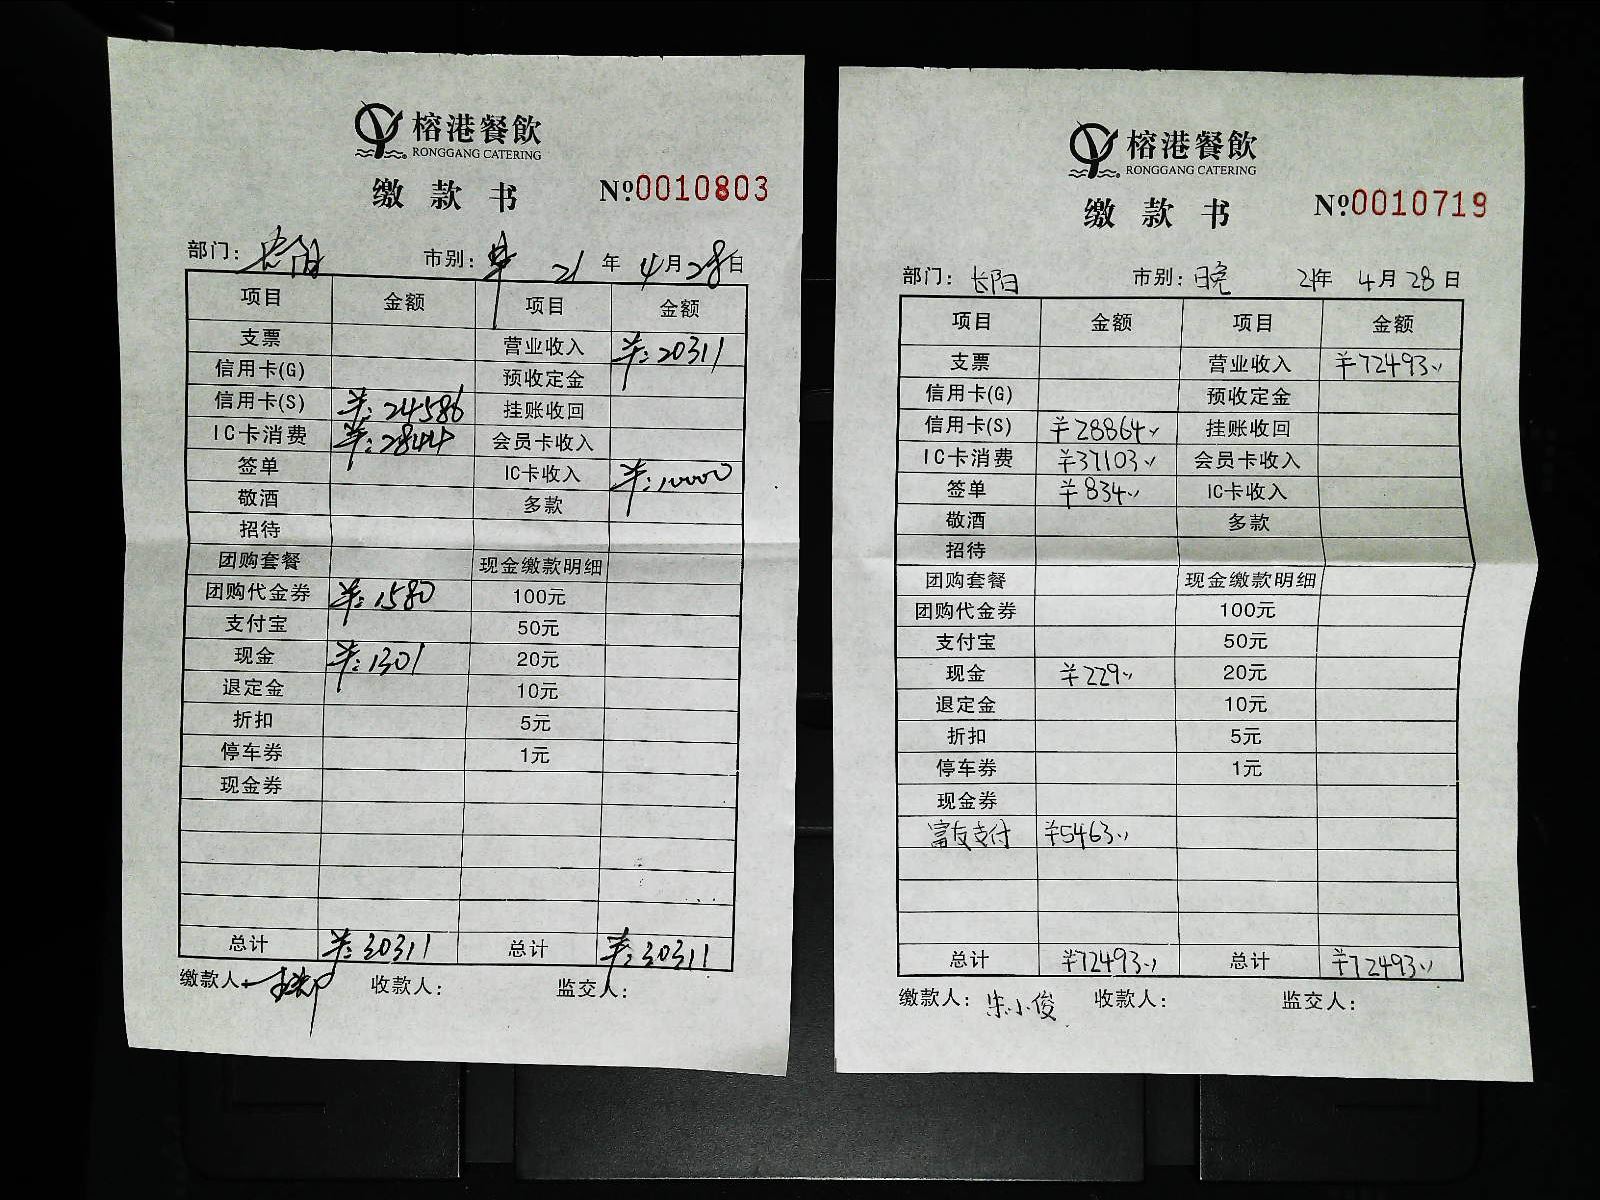 榕港餐飲
RONGGANG CATERING
缴款书 №0010803
部门: 长阳 市别: 早 21年4月28日
项目 金额 项目 金额
支票 营业收入 ¥:20311
信用卡(G) 预收定金
信用卡(S) ¥:24586 挂账收回
IC卡消费 ¥:2844 会员卡收入
签单 IC卡收入 ¥:10000
敬酒 多款
招待
团购套餐 现金缴款明细
团购代金券 ¥:1580 100元
支付宝 50元
现金 ¥:1301 20元
退定金 10元
折扣 5元
停车券 1元
现金券
总计 ¥:30311 总计 ¥:30311
缴款人: 收款人: 监交人:
榕港餐飲
RONGGANG CATERING
缴款书 №0010719
部门: 长阳 市别: 晚 21年4月28日
项目 金额 项目 金额
支票 营业收入 ¥72493
信用卡(G) 预收定金
信用卡(S) ¥28864 挂账收回
IC卡消费 ¥37103 会员卡收入
签单 ¥834 IC卡收入
敬酒 多款
招待
团购套餐 现金缴款明细
团购代金券 100元
支付宝 50元
现金 ¥229 20元
退定金 10元
折扣 5元
停车券 1元
现金券
富友支付 ¥5463
总计 ¥72493 总计 ¥72493
缴款人: 朱小俊 收款人: 监交人: